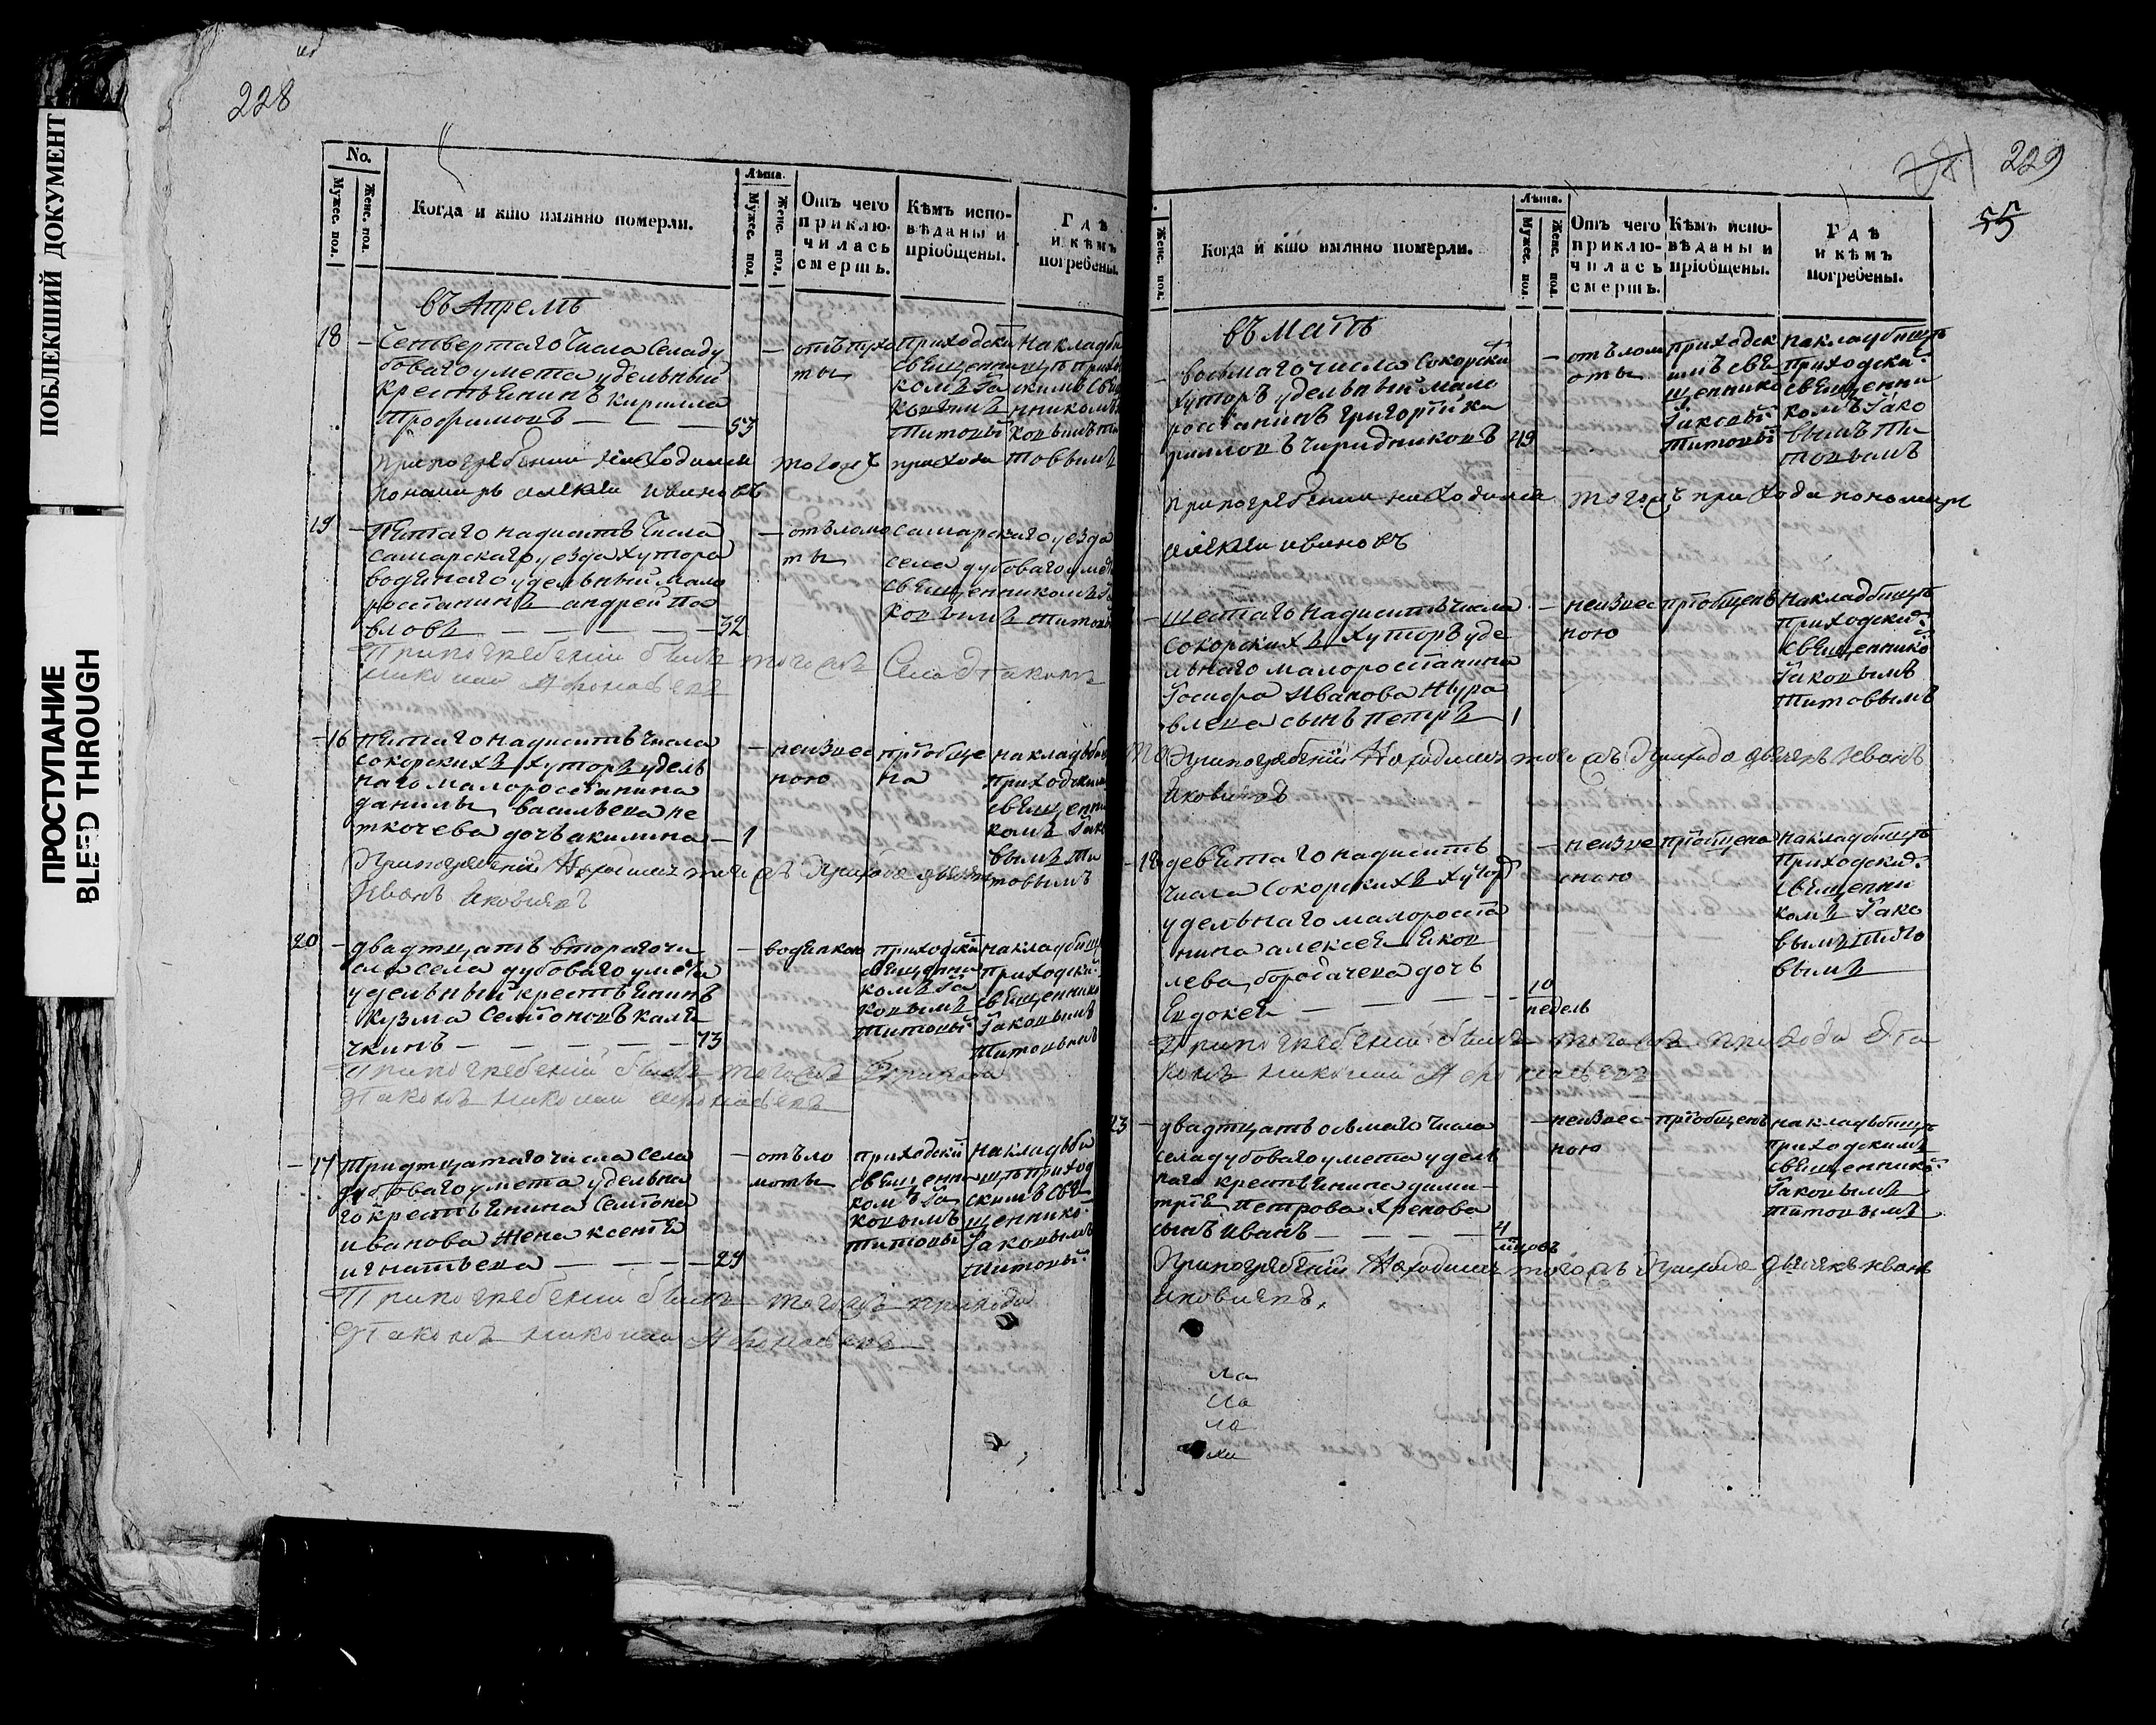 ПОБЛЕКШИЙ ДОКУМЕНТ
ПРОСТУПАНИЕ
BLEED THROUGH
228
No.
Мужес. пол.
Женс. пол.
Когда и кто имянно померли.
Лѣта.
Мужес. пол.
Женс. пол.
Отъ чего приклю-чилась смерть.
Кѣмъ испо-вѣданы и пріобщены.
Гдѣ и кѣмъ погребены.
въ Апрелѣ
18 — Четвертаго числа села ду
боваго умета удельный
крестьянинъ кирилла
Трофимовъ — — — 53
— отъ
ты
приходски
священни
комъ Iа
ковымъ
Титовы
на кладби
щѣ прихо
скимъ свя
нникомъ
ковымъ ти
товымъ
при погребении находился тогожъ прихода
пономарь алекси ивановъ
19 — Пятаго надцять числа
самарскаго уезда хутора
водянаго удельный мало
россіанинъ андрей Па
вловъ — — — — — 32
— отъ ломо
ты
самарскаго уезда
села дубоваго умета
священникомъ Iа
ковымъ титовы
При погребеніи былъ тогожъ Села Діаконъ
николаи
—16 пятаго надцять числа
сокорскихъ хуторъ удель
наго малоросіанина
данилы васильева не
ткочева дочь акилина — 1
— неизвес
ною
пріобще
на
на кладьби
приходским
священни
комъ Iако
вымъ Ти
товымъ
При погребеніи Находился тогожъ Прихода дьячекъ
Иванъ Яковлевъ
20 — двадтцать втораго чи
сла села дубоваго умета
удельный крестьянинъ
кузма Семіоновъ каля
чкинъ — — — — — 73
— водянкою
приходски
священни
комъ Iа
ковымъ
Титовы
на кладбищ
приходски
священнико
Iаковымъ
Титовымъ
При погребеніи былъ тогожъ Прихода
Діаконъ николаи
—17 Тридтцатаго числа села
дубоваго умета удельна
го крестьянина Семіона
иванова жена ксенія
игнатьева — — — — 29
— отъ ло
моты
приходски
священни
комъ Iа
ковымъ
титовы
на кладьби
щѣ приход
скимъ свя
щеннико
Iаковымъ
Титовы
При погребеніи былъ тогожъ прихода
Діаконъ николаи
229
55
Женс. пол.
Когда и кто имянно померли.
Лѣта.
Мужес. пол.
Женс. пол.
Отъ чего приклю-чилась смерть.
Кѣмъ испо-вѣданы и пріобщены.
Гдѣ и кѣмъ погребены.
въ маѣ
— восьмаго числа Сокорски
хуторъ удельный мало
россіанинъ григорій ки
риловъ чиридниковъ 49
— отъ лом
оты
приходск
имъ свя
щеннико
Iаковы
Титовы
на кладбищѣ
приходски
священни
комъ Iако
вымъ Ти
товымъ
При погребении находился тогожъ прихода пономарь
алекси ивановъ
— шестаго надцять числа
сокорскихъ хуторъ уде
льнаго малоросіанина
Iосифа Иванова Жура
влева сынъ Петръ 1
— неизвес
ною
пріобщенъ
на кладбищѣ
приходски
священнико
Iаковымъ
Титовымъ
При погребеніи Находился тогожъ Прихода дьячекъ Иванъ
Яковлевъ
—18 девятаго надцять
числа Сокорскихъ хутор
удельнаго малоросіа
нина алексея яков
лева бородачева дочь
Евдокея — — — — 10
недель
— неизве
сною
пріобщена
на кладбищѣ
приходски
священни
комъ Iако
вымъ Тито
вымъ
При погребеніи былъ тогожъ прихода Діа
конъ николаи
23 — двадтцать осьмаго числа
села дубоваго умета удель
наго крестьянина дими
трія Петрова Хренова
сынъ Иванъ — — — — 4
мцовъ
— неизвес
ною
— пріобщенъ
на кладьбищѣ
приходскимъ
священнико
Iаковымъ
титовымъ
При погребеніи Находился тогожъ Прихода дьячекъ иванъ
Яковлевъ.
ла
ла
ла
ли